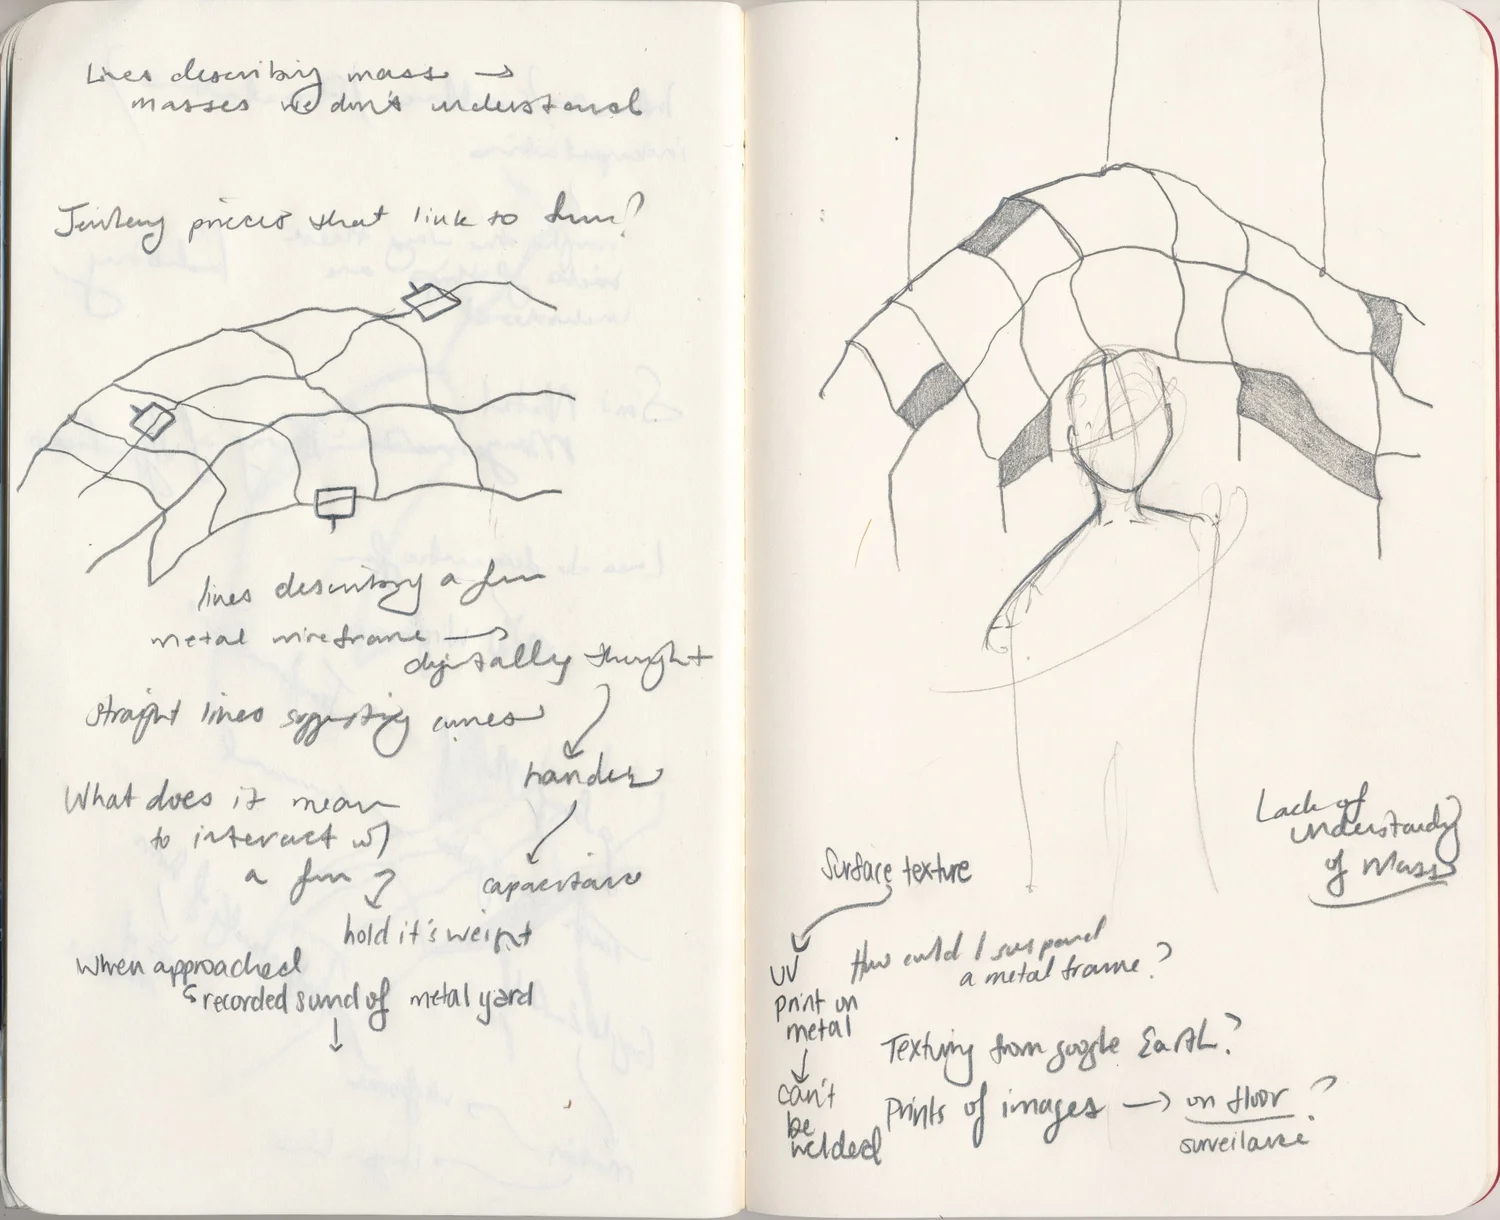 Lines describing mass →
masses we don't understand
pieces that link to
lines describing a
metal wireframe →
digitally thought
straight lines suggesting curves
What does it mean
to interact w/
a
hold it's weight
When approached
recorded sound of metal yard
Lack of
understanding
of mass
Surface texture
UV
print on
metal
can't
be
welded
How could I suspend
a metal frame?
Texturing from google Earth?
Prints of images → on floor?
surveilance